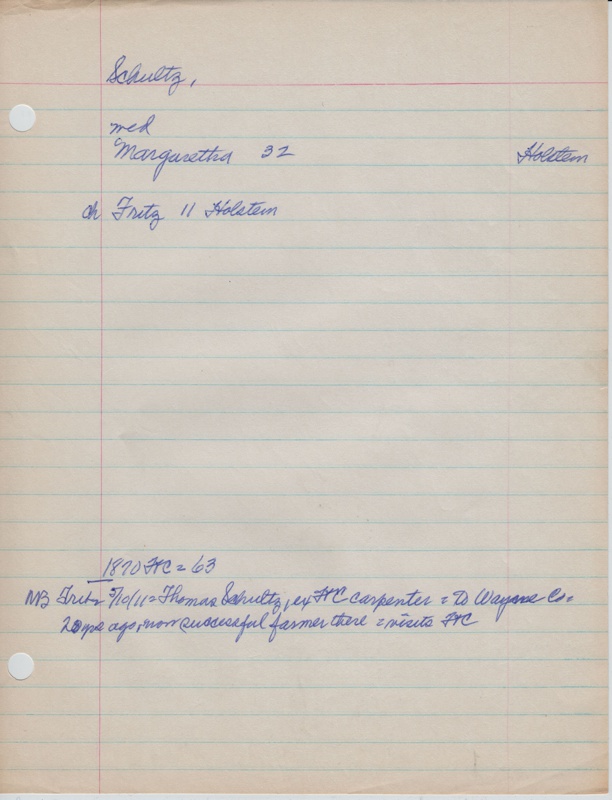 Schultz,
med
Margaretha 32 Holstein
ch Fritz 11 Holstein
1870 FtC = 63
NB Fritz 3/10/11 = Thomas Schultz, ex FtC carpenter = to Wayne Co =
20 yrs ago, now successful farmer there = visits FtC